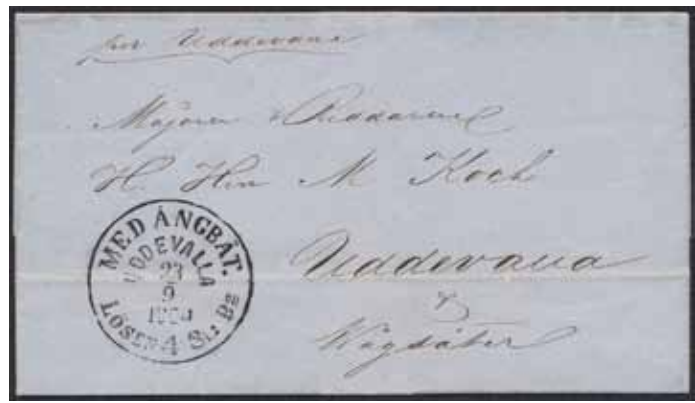 per Uddevalla
Majoren & Riddaren
H. Herr M Koch
Uddevalla
&
MED ÅNGBÅT.
UDDEVALLA
23
9
LÖSEN 4 Sk: Bº